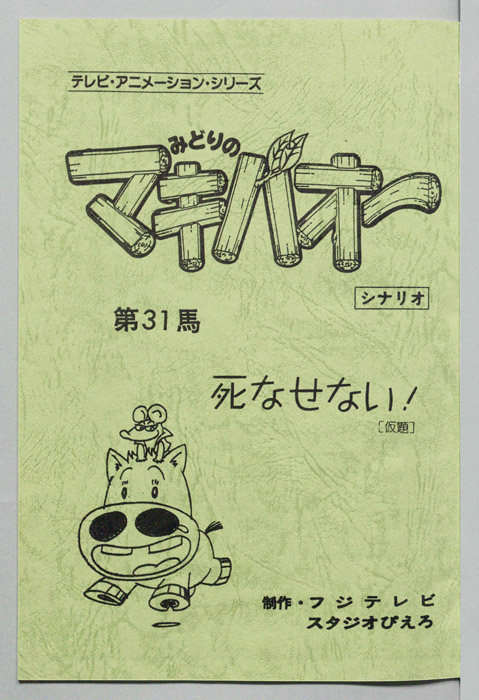 テレビ・アニメーション・シリーズ
みどりの
マキバオー
シナリオ
第31馬
死なせない!
[仮題]
制作・フジテレビ
スタジオぴえろ